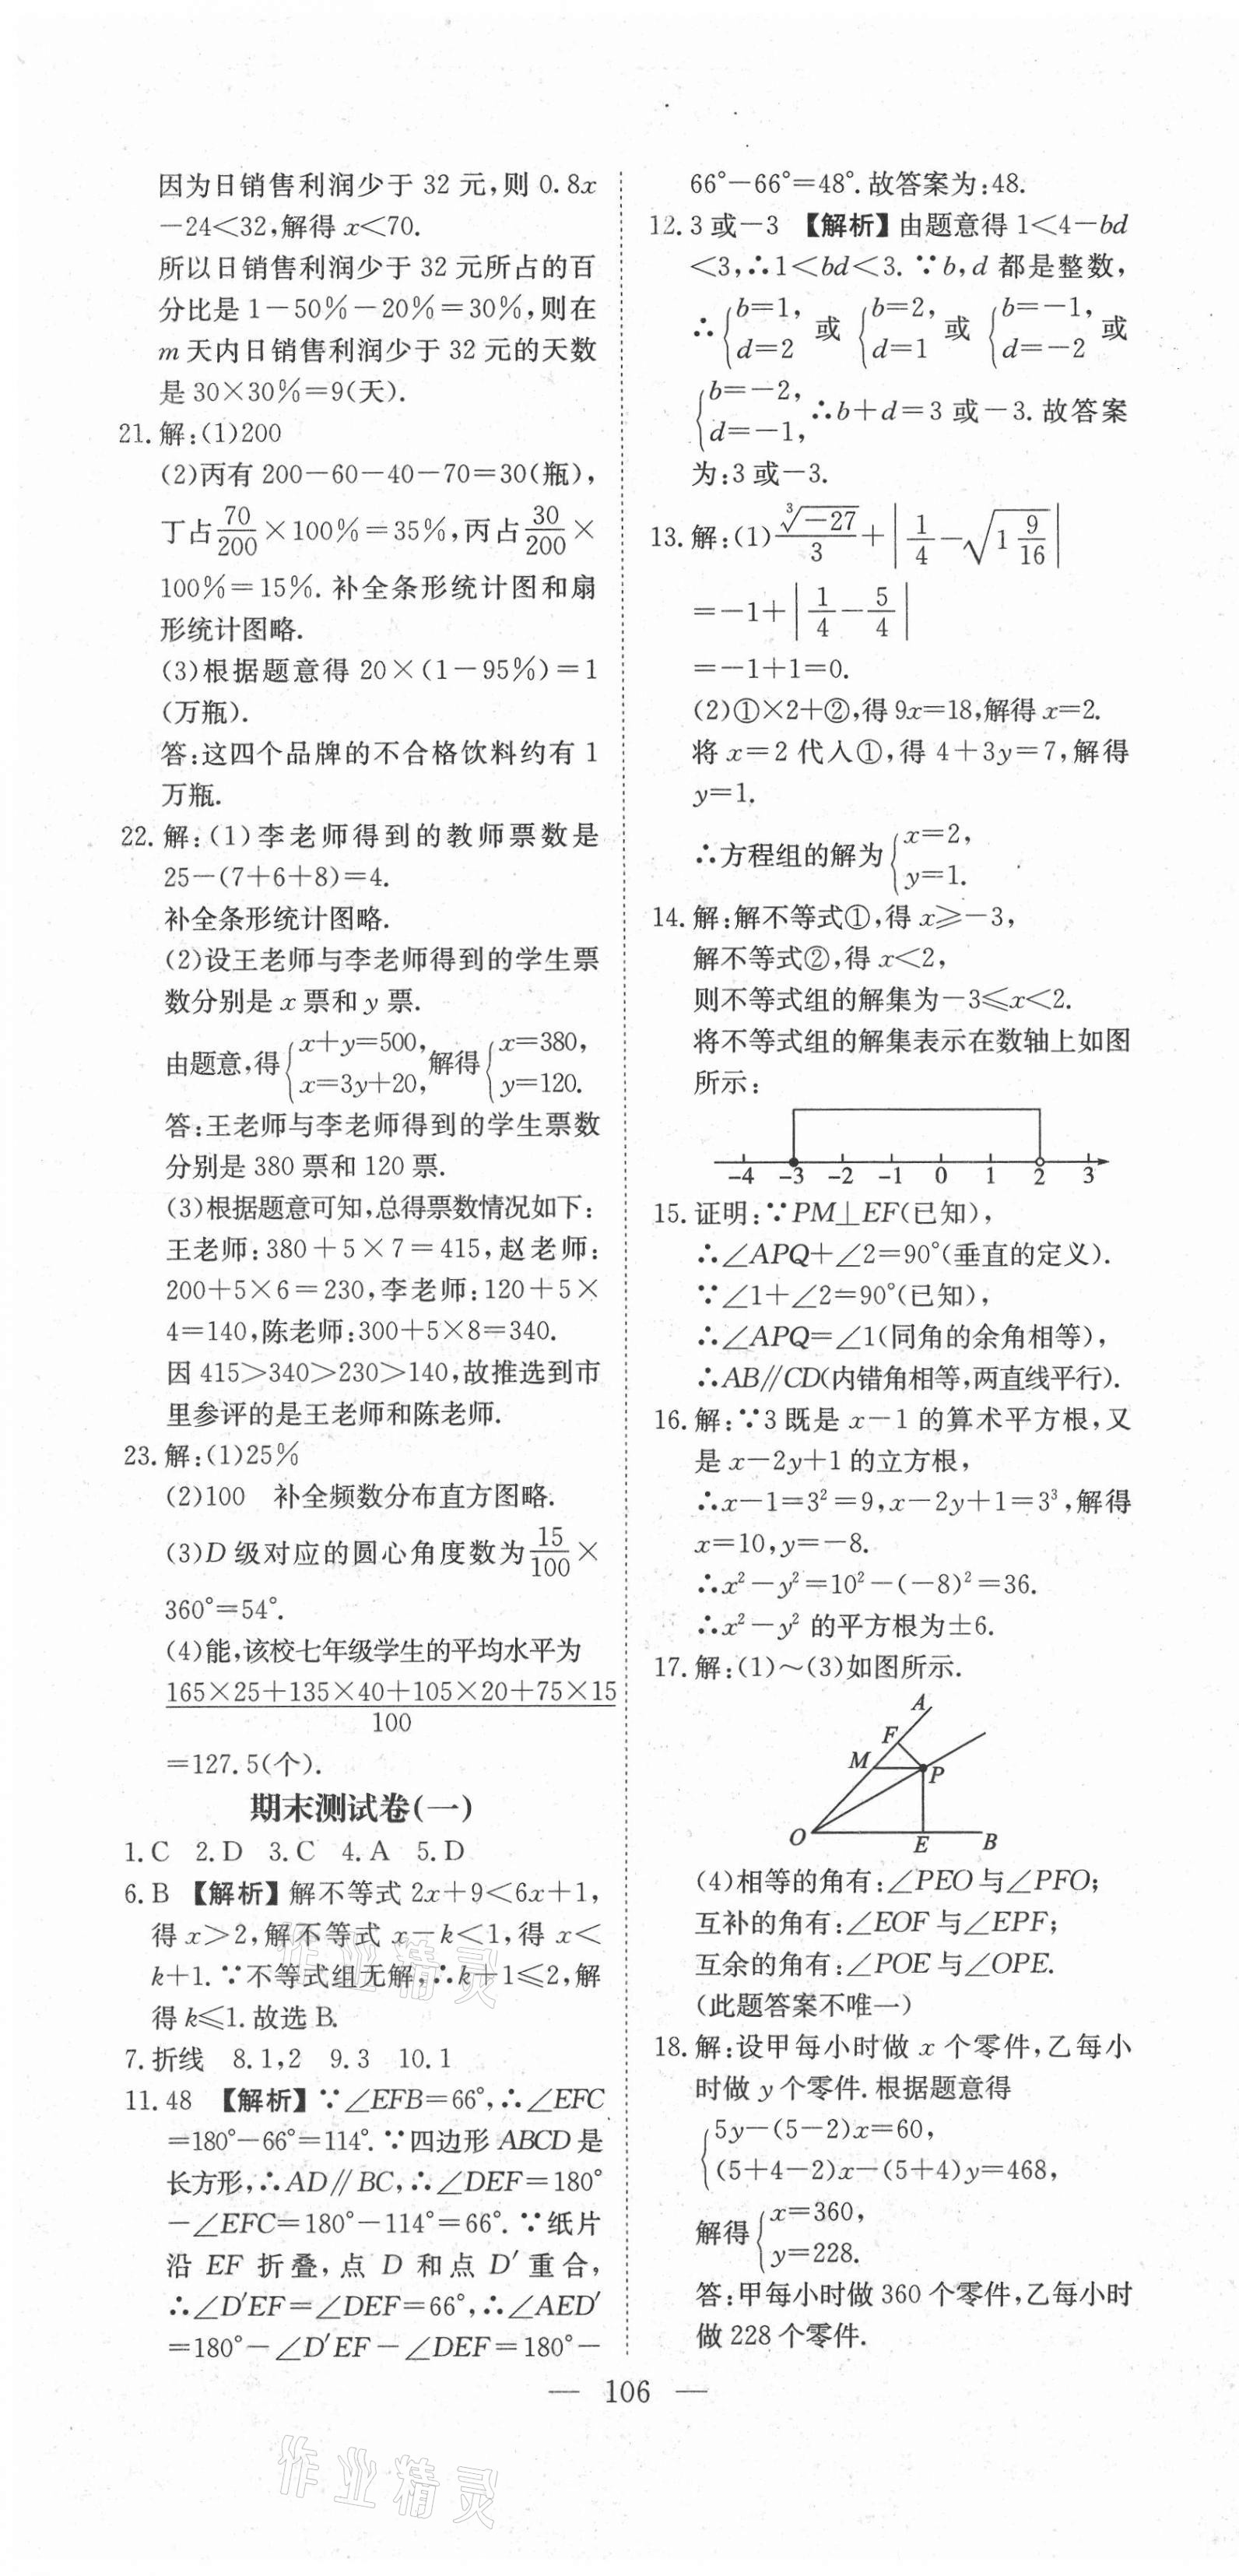 因为日销售利润少于 32 元,则 0.8x
-24<32,解得 x<70.
所以日销售利润少于 32 元所占的百
分比是 1-50%-20%=30%,则在
m 天内日销售利润少于 32 元的天数
是 30×30%=9(天).
21. 解:(1)200
(2)丙有 200-60-40-70=30(瓶),
丁占70/200×100%=35%,丙占30/200×
100%=15%. 补全条形统计图和扇
形统计图略.
(3)根据题意得 20×(1-95%)=1
(万瓶).
答:这四个品牌的不合格饮料约有 1
万瓶.
22. 解:(1)李老师得到的教师票数是
25-(7+6+8)=4.
补全条形统计图略.
(2)设王老师与李老师得到的学生票
数分别是 x 票和 y 票.
由题意,得{x+y=500, x=3y+20,解得{x=380, y=120.
答:王老师与李老师得到的学生票数
分别是 380 票和 120 票.
(3)根据题意可知,总得票数情况如下:
王老师:380+5×7=415,赵老师:
200+5×6=230,李老师:120+5×
4=140,陈老师:300+5×8=340.
因 415>340>230>140,故推选到市
里参评的是王老师和陈老师.
23. 解:(1)25%
(2)100 补全频数分布直方图略.
(3)D 级对应的圆心角度数为15/100×
360°=54°.
(4)能,该校七年级学生的平均水平为
165×25+135×40+105×20+75×15
100
=127.5(个).
期末测试卷(一)
1. C 2. D 3. C 4. A 5. D
6. B 【解析】解不等式 2x+9<6x+1,
得 x>2,解不等式 x-k<1,得 x<
k+1. ∵不等式组无解,∴k+1≤2,解
得 k≤1. 故选 B.
7. 折线 8. 1,2 9. 3 10. 1
11. 48 【解析】∵∠EFB=66°,∴∠EFC
=180°-66°=114°. ∵四边形 ABCD 是
长方形,∴AD∥BC,∴∠DEF=180°
-∠EFC=180°-114°=66°. ∵纸片
沿 EF 折叠,点 D 和点 D′重合,
∴∠D′EF=∠DEF=66°,∴∠AED′
=180°-∠D′EF-∠DEF=180°-
66°-66°=48°. 故答案为:48.
12. 3 或-3 【解析】由题意得 1<4-bd
<3,∴1<bd<3. ∵b,d 都是整数,
∴{b=1, d=2 或 {b=2, d=1 或 {b=-1, d=-2 或
{b=-2, d=-1, ∴b+d=3 或-3. 故答案
为:3 或-3.
13. 解:(1)∛-27/3+|1/4-√1 9/16|
=-1+|1/4-5/4|
=-1+1=0.
(2)①×2+②,得 9x=18,解得 x=2.
将 x=2 代入①,得 4+3y=7,解得
y=1.
∴方程组的解为{x=2, y=1.
14. 解:解不等式①,得 x≥-3,
解不等式②,得 x<2,
则不等式组的解集为-3≤x<2.
将不等式组的解集表示在数轴上如图
所示:
-4 -3 -2 -1 0 1 2 3
15. 证明:∵PM⊥EF(已知),
∴∠APQ+∠2=90°(垂直的定义).
∵∠1+∠2=90°(已知),
∴∠APQ=∠1(同角的余角相等),
∴AB∥CD(内错角相等,两直线平行).
16. 解:∵3 既是 x-1 的算术平方根,又
是 x-2y+1 的立方根,
∴x-1=3²=9,x-2y+1=3³,解得
x=10,y=-8.
∴x²-y²=10²-(-8)²=36.
∴x²-y² 的平方根为±6.
17. 解:(1)~(3)如图所示.
A
F
M
P
O
E
B
(4)相等的角有:∠PEO与∠PFO;
互补的角有:∠EOF 与∠EPF;
互余的角有:∠POE 与∠OPE.
(此题答案不唯一)
18. 解:设甲每小时做 x 个零件,乙每小
时做 y 个零件. 根据题意得
{5y-(5-2)x=60,
(5+4-2)x-(5+4)y=468,
解得{x=360, y=228.
答:甲每小时做 360 个零件,乙每小时
做 228 个零件.
— 106 —
作业精灵
作业精灵